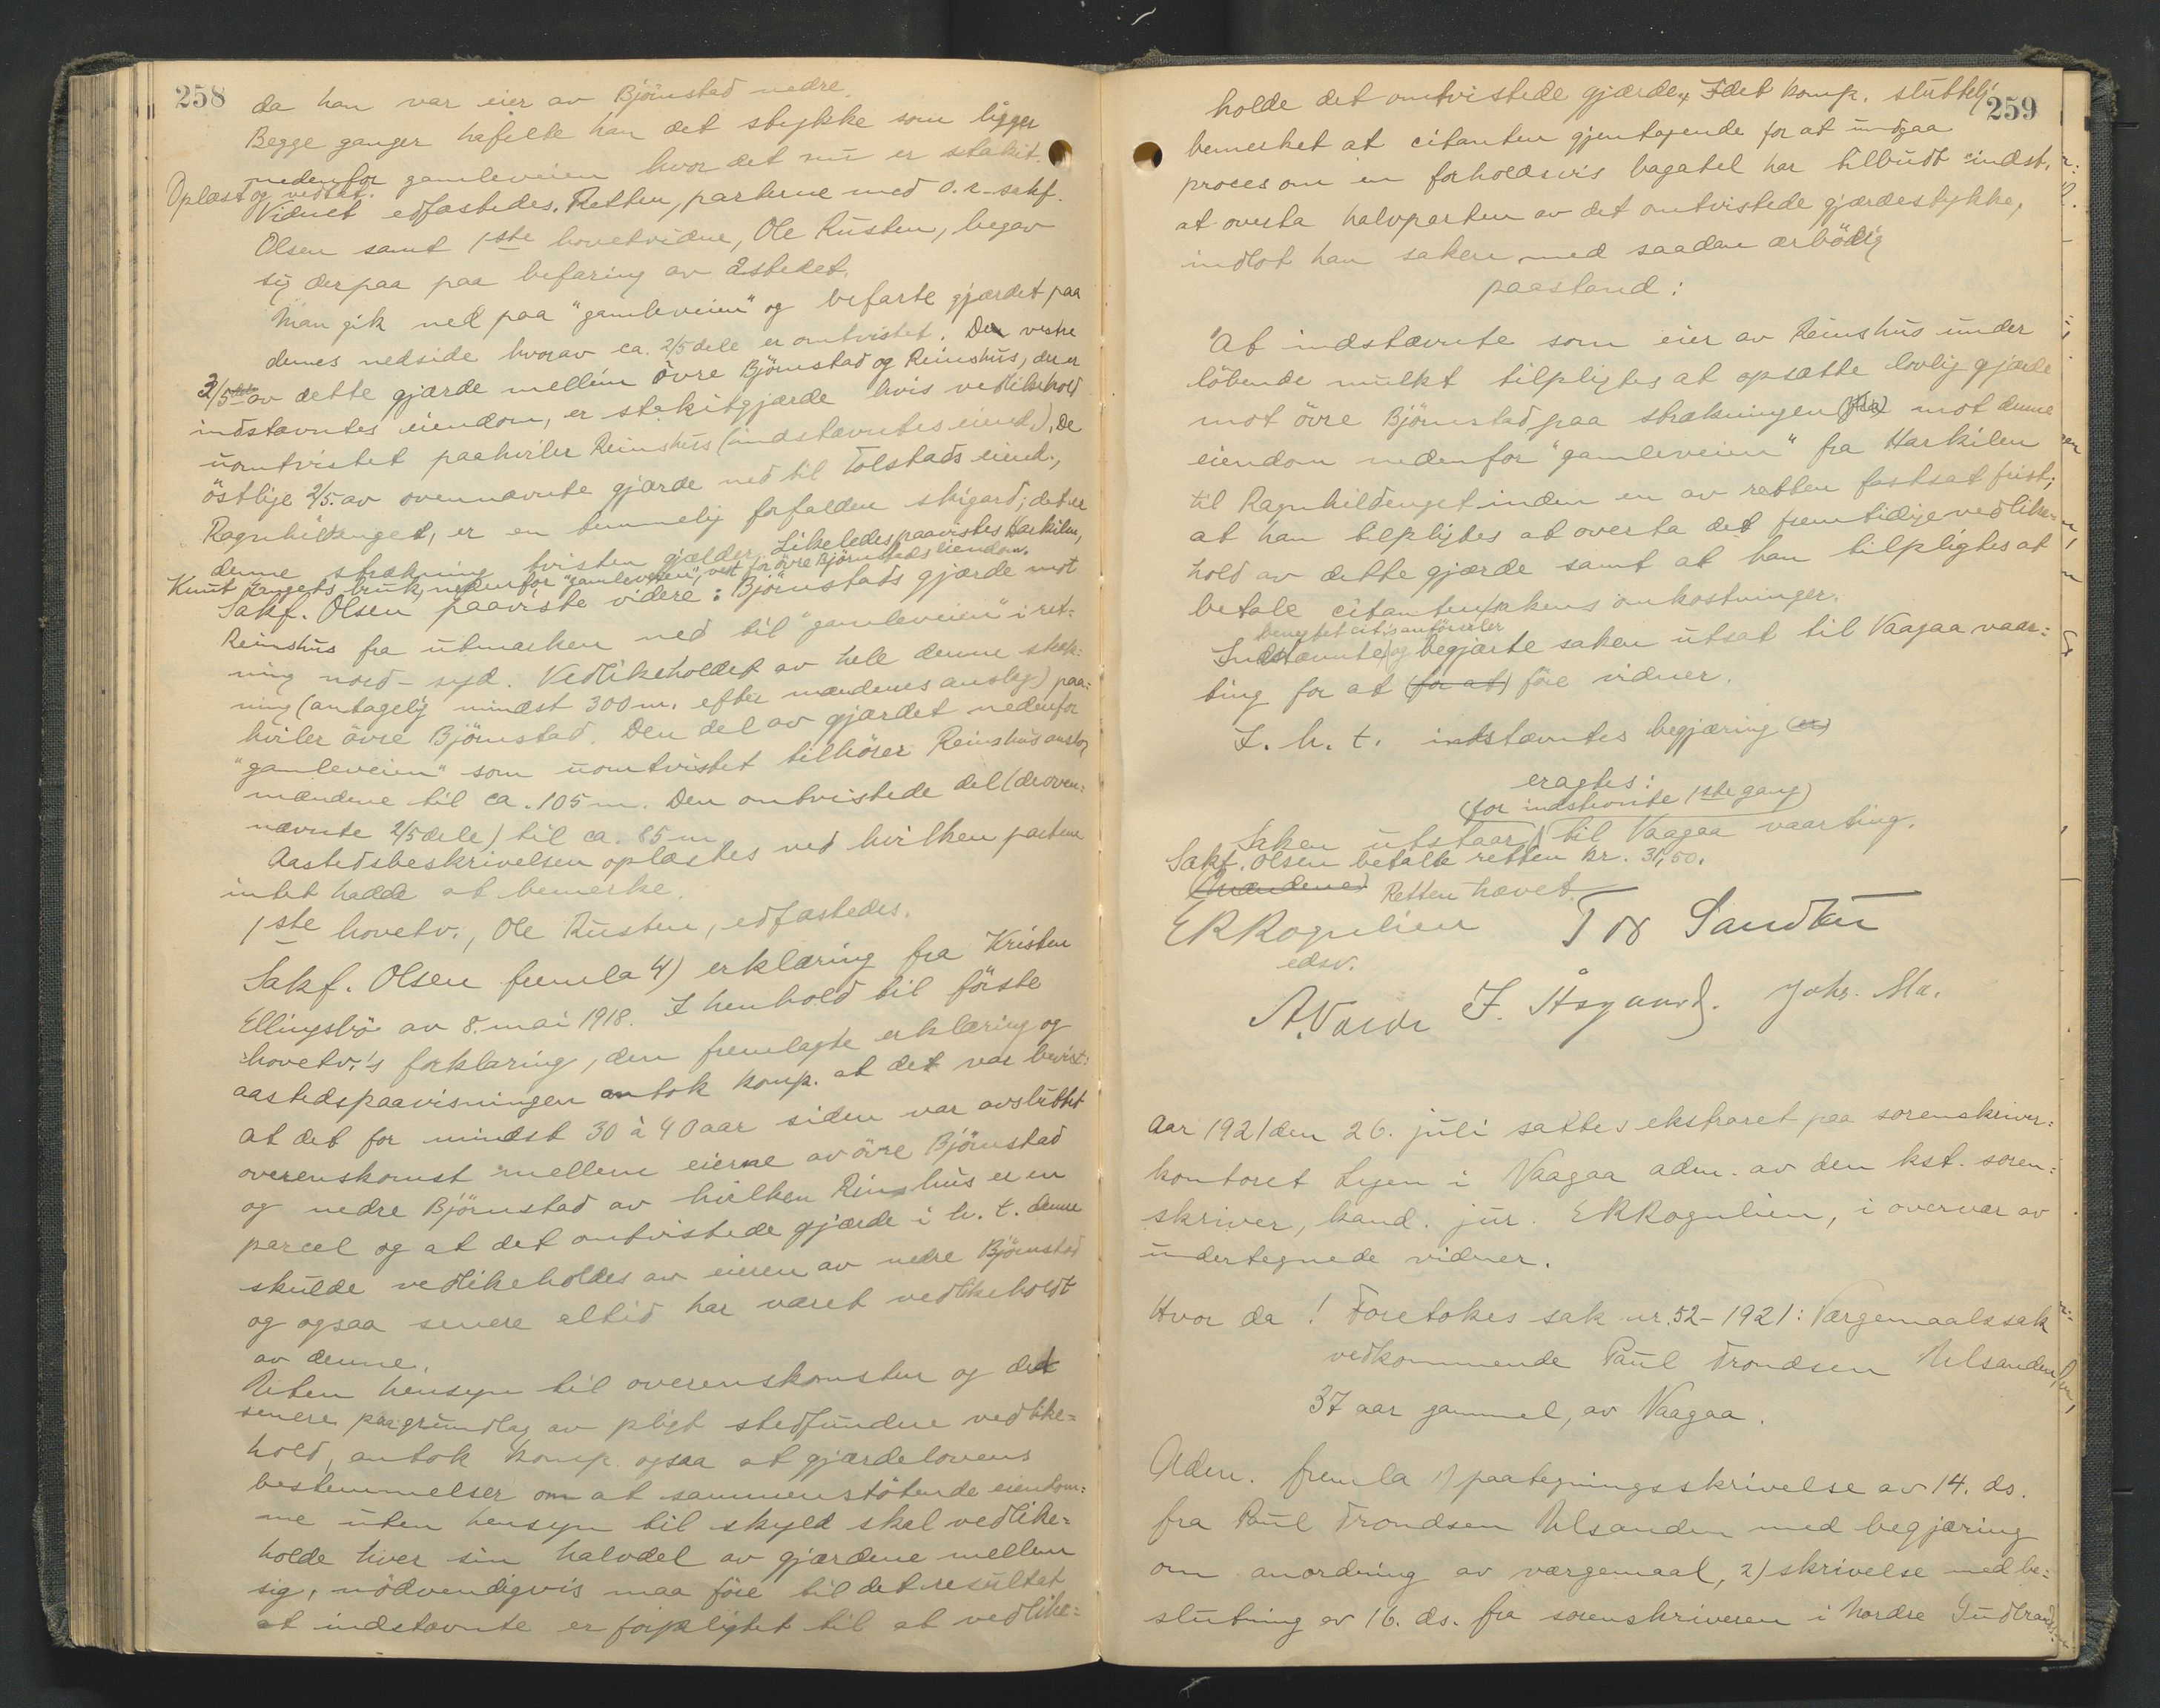 258
da han var eier av Björnstad nedre.
Begge ganger hefilte han det stykke som ligger
nedenfor gamleveien hvor det nu er stakit.
Oplæst og vedtat.
Vidnet edfæstedes. Retten, parterne med o.r.sakf.
Olsen samt 1ste hovetvidne, Ole Rusten, begav
sig derpaa paa befaring av åstedet.
Man gik ned paa "gamleveien" og befarte gjærdet paa
dennes nedside hvorav ca. 2/5 dele er omtvistet. Den vestre
3/5 av dette gjærde mellem övre Björnstad og Reinshus, der er
indstævntes eiendom, er stakitgjærde hvis vedlikehold
uomtvistet paahviler Reinshus (indstævntes eiend.). De
östlige 2/5 av ovennævnte gjærde ned til Tolstads eiend.,
Ragnhildenget, er en temmelig forfalden skigard; det er
denne strækning tvisten gjælder. Likeledes paavistes Harkilen,
Knut Hangets bruk, nedenfor "gamleveien", vest for övre Björnstads eiendom.
Sakf. Olsen paaviste videre: Björnstads gjærde mot
Reinshus fra utmarken ned til "gamleveien" i ret-
ning nord-syd. Vedlikeholdet av hele denne stræk-
ning (antagelig mindst 300 m. efter mændenes anslag) paa-
hviler övre Björnstad. Den del av gjærdet nedenfor
"gamleveien" som uomtvistet tilhörer Reinshus anslog
mændene til ca. 105 m. Den omtvistede del (de oven-
nævnte 2/5 dele) til ca. 85 m.
Aastedsbeskrivelsen oplæstes ved hvilken parterne
intet hadde at bemerke.
1ste hovetv., Ole Rusten, edfæstedes.
Sakf. Olsen fremla 4) erklæring fra Kristen
Ellingsbø av 8. mai 1918. I henhold til förste
hovetv.'s forklaring, den fremlagte erklæring og
aastedspaavisningen antok komp. at det var bevist:
at det for mindst 30 à 40 aar siden var avsluttet
overenskomst mellem eierne av övre Björnstad
og nedre Björnstad av hvilken Reinshus er en
parcel og at det omtvistede gjærde i h. t. denne
skulde vedlikeholdes av eieren av nedre Björnstad
og ogsaa senere altid har været vedlikeholdt
av denne.
Uten hensyn til overenskomsten og det
senere paa grundlag av pligt stedfundne vedlike-
hold, antok komp. ogsaa at gjærdelovens
bestemmelser om at sammenstötende eiendom-
me uten hensyn til skyld skal vedlike-
holde hver sin halvdel av gjærdene mellem
sig, nödvendigvis maa före til det resultat
at indstævnte er forpligtet til at vedlike-
259
holde det omtvistede gjærde. Idet komp. sluttelig
bemerket at citanten gjentagende for at undgaa
proces om en forholdsvis bagatel har tilbudt indst.
at overta halvparten av det omtvistede gjærdestykke,
indlot han saken med saadan ærbödig
paastand:
"At indstævnte som eier av Reinshus under
löbende mulkt tilpligtes at opsætte lovlig gjærde
mot övre Björnstad paa strækningen mot denne
eiendom nedenfor "gamleveien" fra Harkilen
til Ragnhildenget inden en av retten fastsat frist;
at han tilpligtes at overta det fremtidige vedlike-
hold av dette gjærde samt at han tilpligtes at
betale citanten sakens omkostninger.
benegtet cit.s anförsler
Indstævnte og begjærte saken utsat til Vaagaa vaar-
ting for at (for at) före vidner.
I. h. t. indstævntes begjæring
eragtes:
(for indstævnte 1ste gang)
Saken utstaar til Vaagaa vaarting.
Sakf. Olsen betalte retten kr. 31,50.
(Mændene) Retten hævet.
E R Rognlien Tor Sandbu
edsv.
A. Valde I. Håganrd. Johs. Mo.
Aar 1921 den 26. juli sattes ekstraret paa sorenskriver-
kontoret Lyen i Vaagaa adm. av den kst. soren-
skriver, kand. jur. E R Rognlien, i overvær av
undertegnede vidner.
Hvor da! Foretokes sak nr. 52-1921: Værgemaalssak
vedkommende Paul Trondsen Ulsanden,
37 aar gammel, av Vaagaa.
Adm. fremla 1) paategningsskrivelse av 14. ds.
fra Paul Trondsen Ulsanden med begjæring
om anordning av værgemaal, 2) skrivelse med be-
slutning av 16. ds. fra sorenskriveren i Nordre Gudbrands-